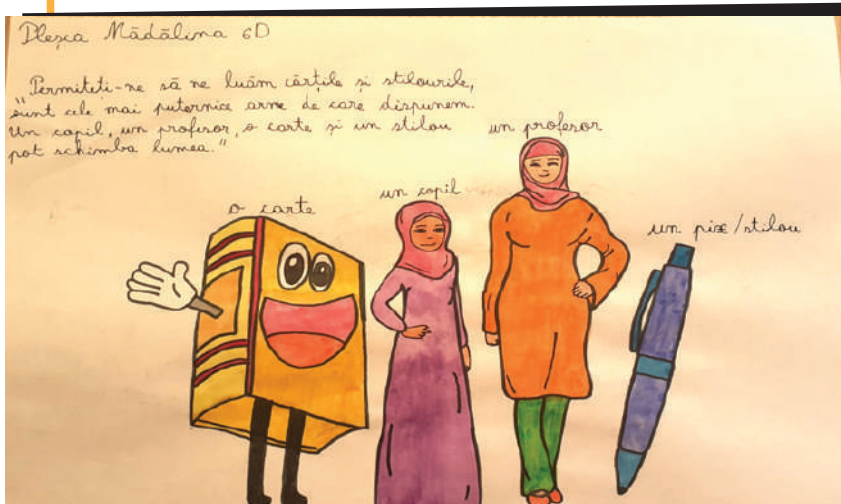 Pleșca Mădălina 6D
"Permiteti-ne să ne luăm cărțile și stilourile,
sunt cele mai puternice arme de care dispunem.
Un copil, un profesor, o carte și un stilou
pot schimba lumea."
un profesor
un copil
o carte
un pix/stilou